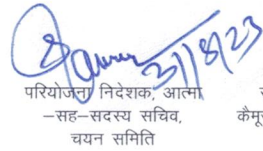 31/8/23
परियोजना निदेशक, आत्मा
–सह–सदस्य सचिव,
चयन समिति
कैमूर